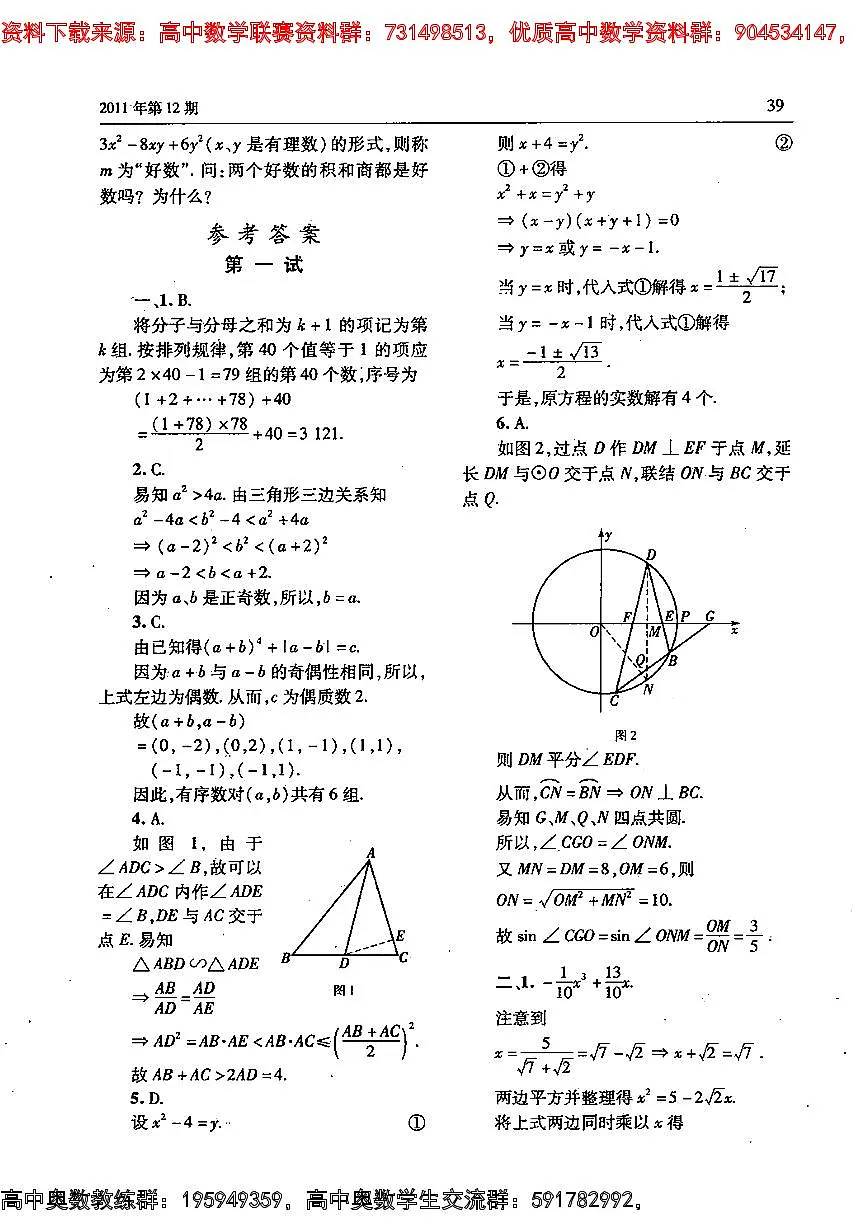 资料下载来源：高中数学联赛资料群：731498513，优质高中数学资料群：904534147，
2011年第12期
39
3x²-8xy+6y²(x、y是有理数)的形式,则称
m为“好数”.问:两个好数的积和商都是好
数吗?为什么?
参考答案
第一试
一、1.B.
将分子与分母之和为k+1的项记为第
k组.按排列规律,第40个值等于1的项应
为第2×40-1=79组的第40个数,序号为
(1+2+…+78)+40
=(1+78)×78/2+40=3 121.
2.C.
易知a²>4a.由三角形三边关系知
a²-4a<b²-4<a²+4a
⇒(a-2)²<b²<(a+2)²
⇒a-2<b<a+2.
因为a、b是正奇数,所以,b=a.
3.C.
由已知得(a+b)⁴+|a-b|=c.
因为a+b与a-b的奇偶性相同,所以,
上式左边为偶数.从而,c为偶质数2.
故(a+b,a-b)
=(0,-2),(0,2),(1,-1),(1,1),
(-1,-1),(-1,1).
因此,有序数对(a,b)共有6组.
4.A.
如图1,由于
∠ADC>∠B,故可以
在∠ADC内作∠ADE
=∠B,DE与AC交于
点E.易知
△ABD∽△ADE
⇒AB/AD=AD/AE
A
E
B
D
C
图1
⇒AD²=AB·AE<AB·AC≤((AB+AC)/2)².
故AB+AC>2AD=4.
5.D.
设x²-4=y.
①
则x+4=y².
②
①+②得
x²+x=y²+y
⇒(x-y)(x+y+1)=0
⇒y=x或y=-x-1.
当y=x时,代入式①解得x=(1±√17)/2;
当y=-x-1时,代入式①解得
x=(-1±√13)/2.
于是,原方程的实数解有4个.
6.A.
如图2,过点D作DM⊥EF于点M,延
长DM与⊙O交于点N,联结ON与BC交于
点Q.
y
D
F
E
P
G
O
M
x
Q
B
N
C
图2
则DM平分∠EDF.
从而,⌒CN=⌒BN⇒ON⊥BC.
易知G、M、Q、N四点共圆.
所以,∠CGO=∠ONM.
又MN=DM=8,OM=6,则
ON=√(OM²+MN²)=10.
故sin∠CGO=sin∠ONM=OM/ON=3/5.
二、1.-1/10x³+13/10x.
注意到
x=5/(√7+√2)=√7-√2⇒x+√2=√7.
两边平方并整理得x²=5-2√2x.
将上式两边同时乘以x得
高中奥数教练群：195949359，高中奥数学生交流群：591782992，